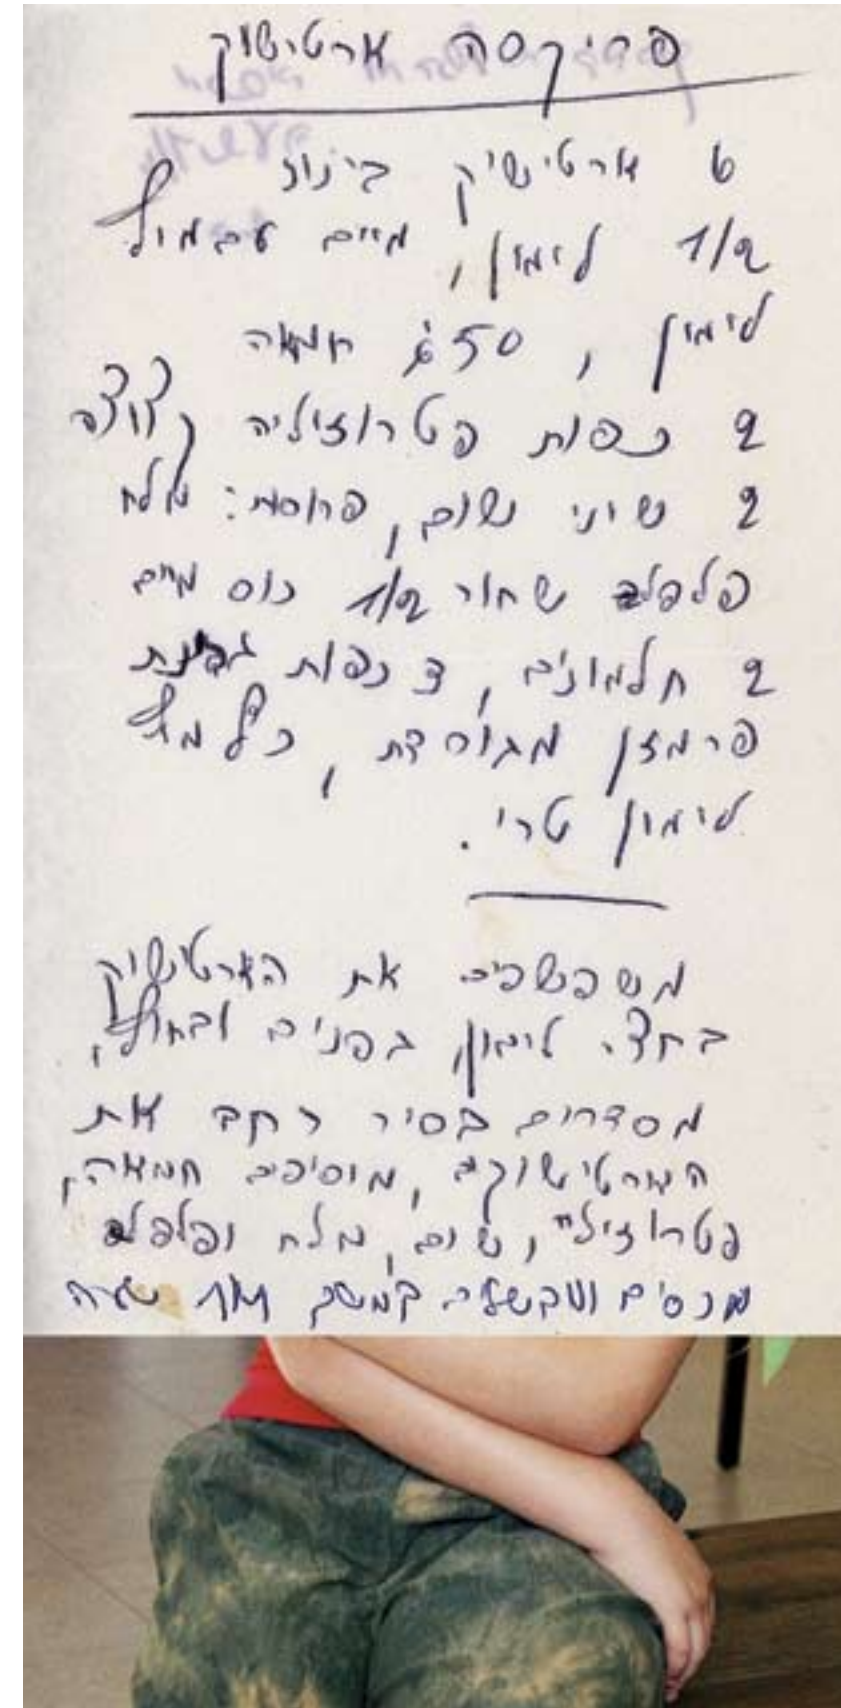 פריקסה ארטישוק
6 ארטישוק בינוני
1/2 לימון, מיים עם מיץ
לימון, 50 ג' חמאה
2 כפות פטרוזיליה קצוצה
2 שיני שום, פרוסות: מלח
פלפל שחור 1/2 כוס מיים
2 חלמונים, 3 כפות גבינת
פרמזן מגורדת, כף מיץ
לימון טרי.
משפשפים את הארטישוק
בחצי לימון, בפנים ובחוץ,
מסדרים בסיר רחב את
הארטישוקים, מוסיפים חמאה,
פטרוזיל", שום, מלח ופלפל
מכסים ומבשלים במשך שעה